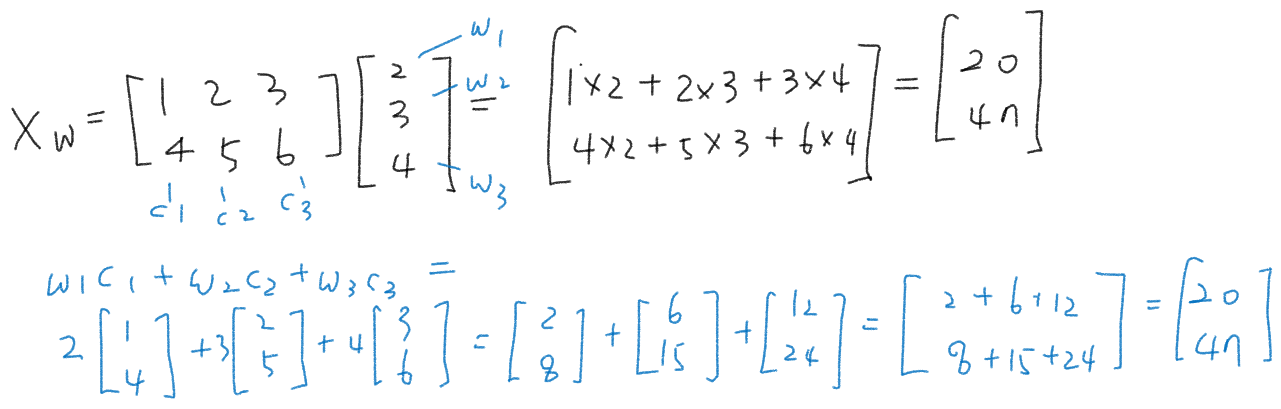 Xw = [1 2 3; 4 5 6] [2; 3; 4] = [1×2 + 2×3 + 3×4; 4×2 + 5×3 + 6×4] = [20; 47]
w1 w2 w3
c1 c2 c3
w1c1 + w2c2 + w3c3 =
2[1; 4] + 3[2; 5] + 4[3; 6] = [2; 8] + [6; 15] + [12; 24] = [2 + 6 + 12; 8 + 15 + 24] = [20; 47]